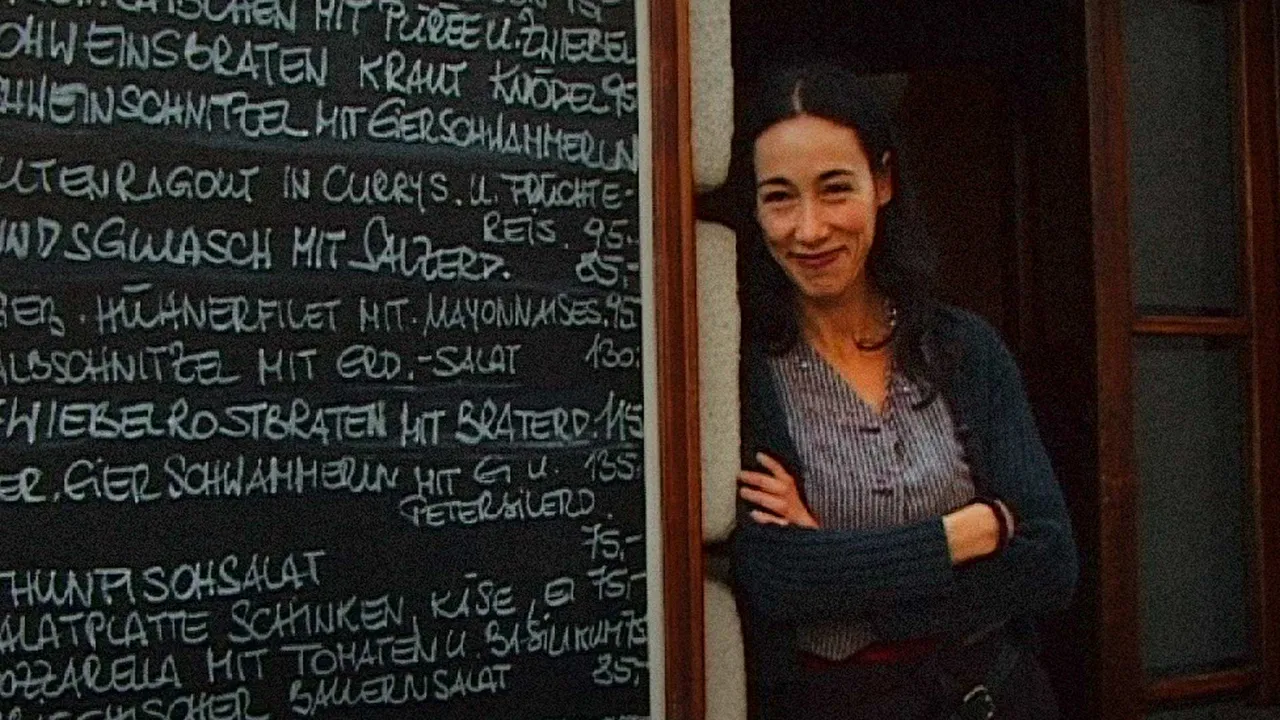 MIT PÜREE U. ZWIEBEL
SCHWEINSBRATEN KRAUT KNÖDEL 95
SCHWEINSCHNITZEL MIT EIERSCHWAMMERLN
RAGOUT IN CURRYS. U. FRÜCHTE-
REIS. 95.-
NDSGULASCH MIT SALZERD. 85,-
HÜHNERFILET MIT. MAYONNAISES. 95
ALBSCHNITZEL MIT ERD.-SALAT 130.
ZWIEBELROSTBRATEN MIT BRATERD. 115
ER. EIERSCHWAMMERLN MIT G U. 135.
PETERSILERD.
75,-
THUNFISCHSALAT
ALATPLATTE SCHINKEN, KÄSE, EI 75,-
OZZARELLA MIT TOMATEN U. BASILIKUM 75
RIECHISCHER BAUERNSALAT 85,-